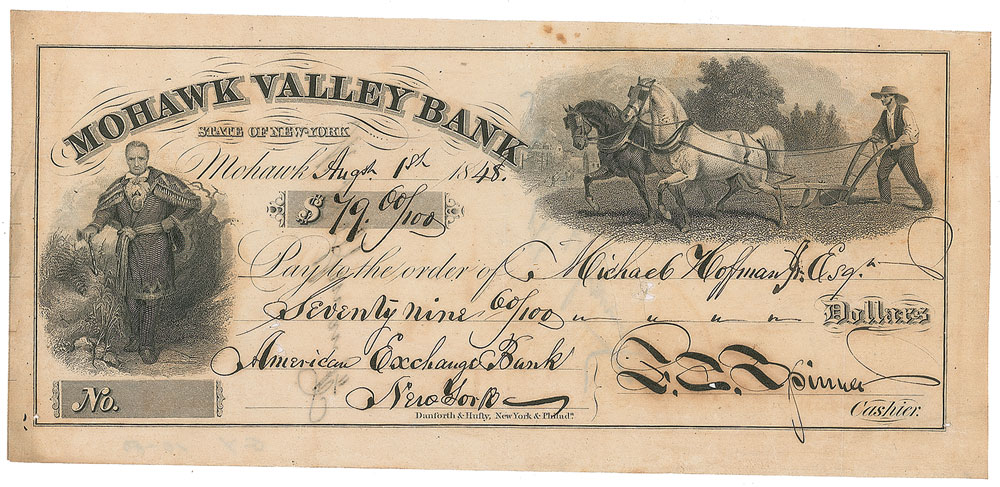 MOHAWK VALLEY BANK
STATE OF NEW-YORK
Mohawk Augth 1st 1848.
$ 79. 60/100
Pay to the order of Michael Hoffman Jr. Esqr
Seventy nine 60/100 " " " " Dollars
American Exchange Bank
New York
F. E. Spinner
Cashier.
No.
Danforth & Hufty, New York & Philada.